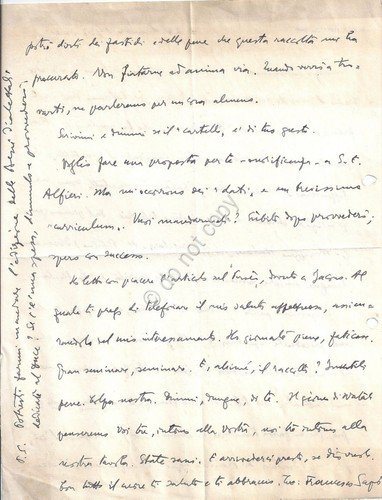 potrò dirti dei fastidi e delle pene che questa raccolta mi ha
procurati. Non fiatarne ad anima viva. Quando verrò a tro-
varti, ne parleremo per un'ora almeno.
Scrivimi e dimmi se il "Cartelli" è di tuo gusto.
Voglio fare una proposta per te a S. E.
Alfieri. Ma mi occorrono dei "dati" e un brevissimo
curriculum. Vuoi mandarmeli? Subito dopo provvederò,
spero con successo.
Ho letto con piacere l'articolo sul dovuto a Jacono. Al
quale ti prego di telefonare il mio saluto affettuoso, assicu-
randolo del mio interessamento. Ho giornate piene, faticose.
Gran seminare, seminare. E, ahimè, il raccolto? Inutili
pene. Colpa nostra. Dimmi, dunque, di te. Il giorno di Natale
penseremo voi tre, intorno alla vostra, noi tre intorno alla
nostra tavola. State sani. E arrivederci presto, se Dio vuole.
Con tutto il cuore ti saluto e ti abbraccio, tuo: Francesco
P.S. Potresti farmi mandare l'edizione delle
dedicate al Duce? Se c'è una spesa, dimmelo e provvederò.
© do not copy